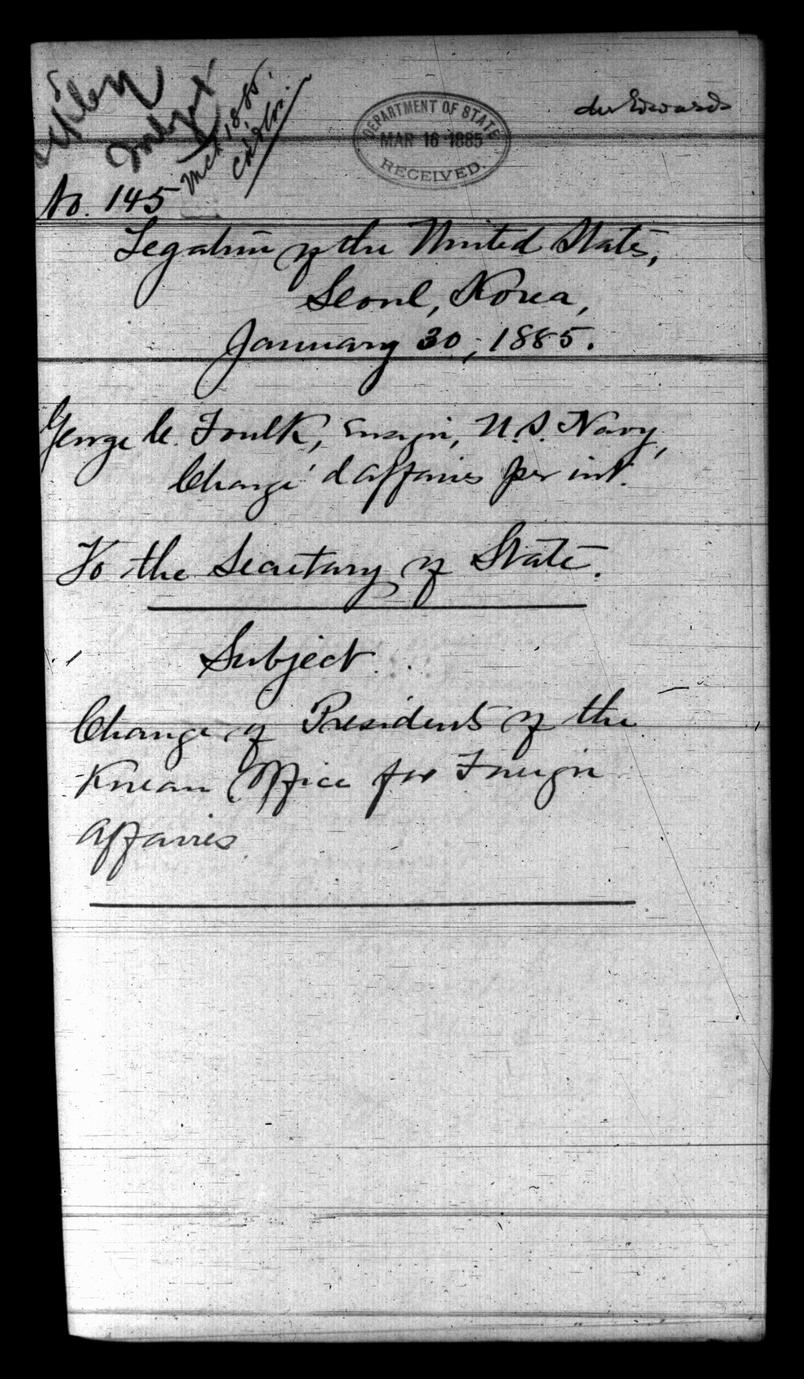 DEPARTMENT OF STATE
MAR 16 1885
RECEIVED.
No. 145
Legation of the United States,
Seoul, Korea,
January 30, 1885.
George C. Foulk, Ensign, U.S. Navy,
Chargé d'affaires per int.
To the Secretary of State.
Subject
Change of Presidents of the
Korean Office for Foreign
Affaires.